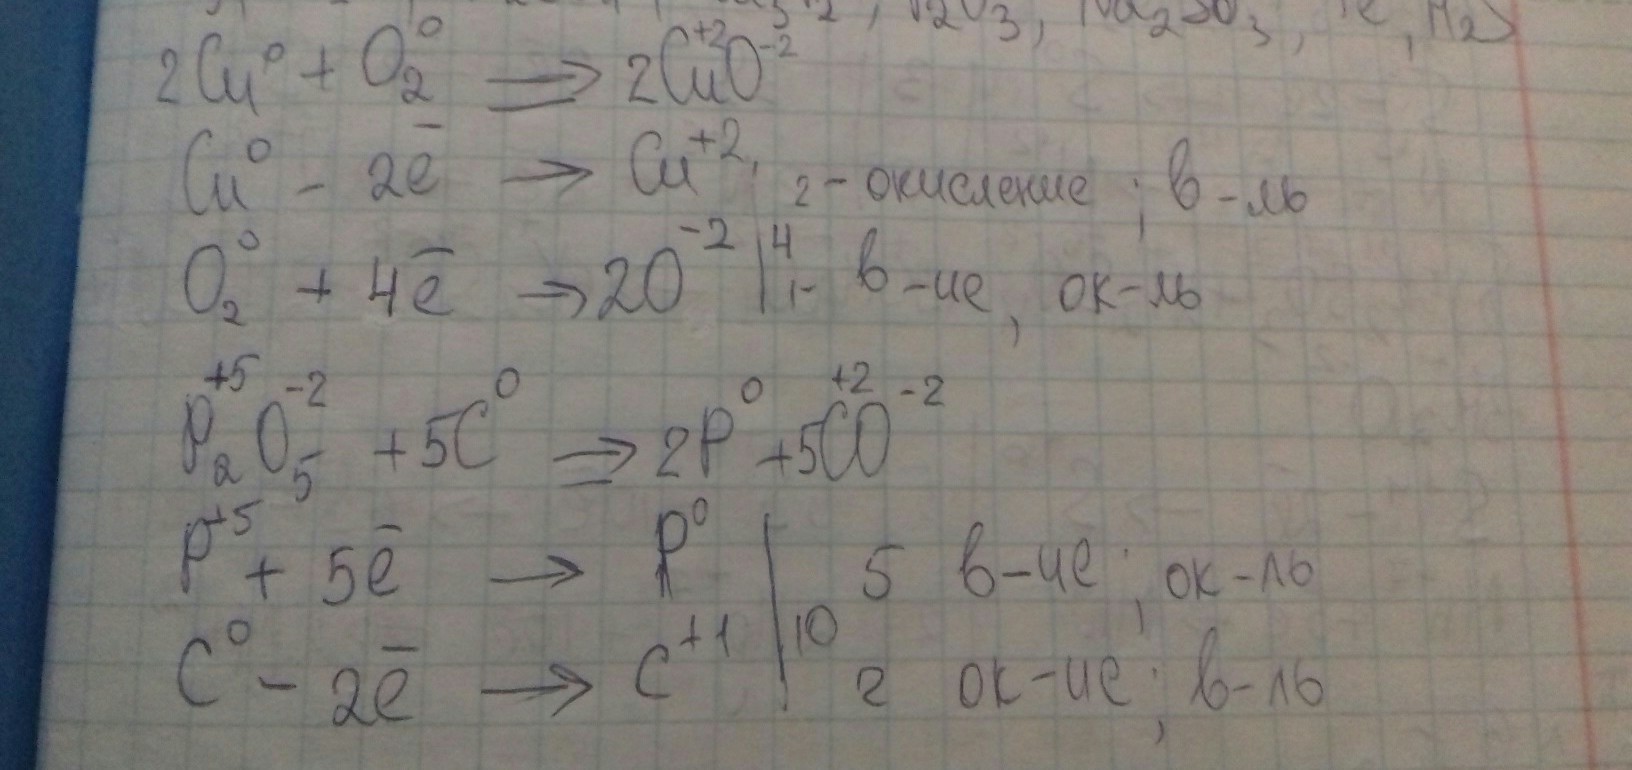 O₃, Na₂SO₃,
2Cu⁰ + O₂⁰ ⇒ 2Cu⁺²O⁻²
Cu⁰ - 2e̅ → Cu⁺² 2 - окисление; в-ль
O₂⁰ + 4e̅ → 2O⁻² | 4 1 - в-ие, ок-ль
P₂⁺⁵O₅⁻² + 5C⁰ ⇒ 2P⁰ + 5C⁺²O⁻²
P⁺⁵ + 5e̅ → P⁰ | 5 в-ие; ок-ль
C⁰ - 2e̅ → C⁺¹ | 10 2 ок-ие; в-ль